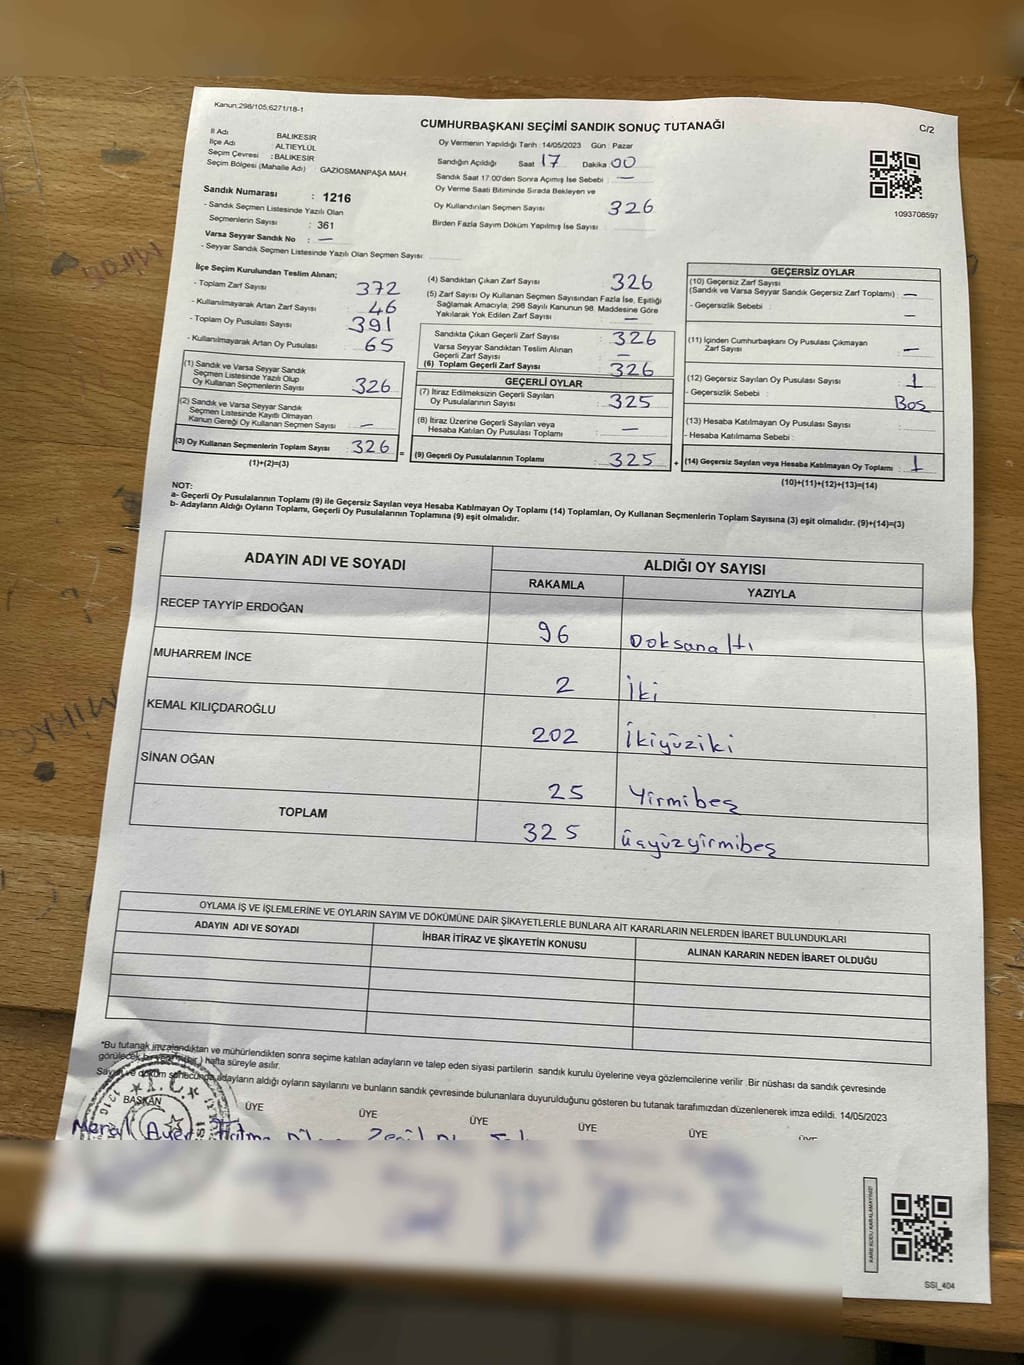 Kanun;298/105;6271/18-1
C/2
CUMHURBAŞKANI SEÇİMİ SANDIK SONUÇ TUTANAĞI
İl Adı BALIKESİR
İlçe Adı ALTIEYLÜL
Seçim Çevresi : BALIKESİR
Seçim Bölgesi (Mahalle Adı) GAZİOSMANPAŞA MAH
Sandık Numarası : 1216
- Sandık Seçmen Listesinde Yazılı Olan
Seçmenlerin Sayısı : 361
Varsa Seyyar Sandık No : —
- Seyyar Sandık Seçmen Listesinde Yazılı Olan Seçmen Sayısı:
Oy Vermenin Yapıldığı Tarih :14/05/2023 Gün : Pazar
Sandığın Açıldığı Saat 17 Dakika 00
Sandık Saat 17:00'den Sonra Açımış İse Sebebi : —
Oy Verme Saati Bitiminde Sırada Bekleyen ve
Oy Kullandırılan Seçmen Sayısı 326
Birden Fazla Sayım Döküm Yapılmış İse Sayısı :
1093708597
İlçe Seçim Kurulundan Teslim Alınan;
- Toplam Zarf Sayısı 372
- Kullanılmayarak Artan Zarf Sayısı : 46
- Toplam Oy Pusulası Sayısı 391
- Kullanılmayarak Artan Oy Pusulası 65
(1) Sandık ve Varsa Seyyar Sandık
Seçmen Listesinde Yazılı Olup
Oy Kullanan Seçmenlerin Sayısı : 326
(2) Sandık ve Varsa Seyyar Sandık
Seçmen Listesinde Kayıtlı Olmayan
Kanun Gereği Oy Kullanan Seçmen Sayısı : —
(3) Oy Kullanan Seçmenlerin Toplam Sayısı : 326 =
(1)+(2)=(3)
(4) Sandıktan Çıkan Zarf Sayısı : 326
(5) Zarf Sayısı Oy Kullanan Seçmen Sayısından Fazla İse, Eşitliği
Sağlamak Amacıyla, 298 Sayılı Kanunun 98. Maddesine Göre
Yakılarak Yok Edilen Zarf Sayısı : —
Sandıkta Çıkan Geçerli Zarf Sayısı : 326
Varsa Seyyar Sandıktan Teslim Alınan
Geçerli Zarf Sayısı : —
(6) Toplam Geçerli Zarf Sayısı : 326
GEÇERLİ OYLAR
(7) İtiraz Edilmeksizin Geçerli Sayılan
Oy Pusulalarının Sayısı : 325
(8) İtiraz Üzerine Geçerli Sayılan veya
Hesaba Katılan Oy Pusulası Toplamı : —
(9) Geçerli Oy Pusulalarının Toplamı : 325 +
GEÇERSİZ OYLAR
(10) Geçersiz Zarf Sayısı
(Sandık ve Varsa Seyyar Sandık Geçersiz Zarf Toplamı) : —
- Geçersizlik Sebebi : —
(11) İçinden Cumhurbaşkanı Oy Pusulası Çıkmayan
Zarf Sayısı : —
(12) Geçersiz Sayılan Oy Pusulası Sayısı : 1
- Geçersizlik Sebebi : Boş
(13) Hesaba Katılmayan Oy Pusulası Sayısı :
- Hesaba Katılmama Sebebi :
(14) Geçersiz Sayılan veya Hesaba Katılmayan Oy Toplamı : 1
(10)+(11)+(12)+(13)=(14)
NOT:
a- Geçerli Oy Pusulalarının Toplamı (9) ile Geçersiz Sayılan veya Hesaba Katılmayan Oy Toplamı (14) Toplamları, Oy Kullanan Seçmenlerin Toplam Sayısına (3) eşit olmalıdır. (9)+(14)=(3)
b- Adayların Aldığı Oyların Toplamı, Geçerli Oy Pusulalarının Toplamına (9) eşit olmalıdır.
ADAYIN ADI VE SOYADI ALDIĞI OY SAYISI
RAKAMLA YAZIYLA
RECEP TAYYİP ERDOĞAN 96 Doksanaltı
MUHARREM İNCE 2 İki
KEMAL KILIÇDAROĞLU 202 İkiyüziki
SİNAN OĞAN 25 Yirmibeş
TOPLAM 325 üçyüzyirmibeş
OYLAMA İŞ VE İŞLEMLERİNE VE OYLARIN SAYIM VE DÖKÜMÜNE DAİR ŞİKAYETLERLE BUNLARA AİT KARARLARIN NELERDEN İBARET BULUNDUKLARI
ADAYIN ADI VE SOYADI İHBAR İTİRAZ VE ŞİKAYETİN KONUSU ALINAN KARARIN NEDEN İBARET OLDUĞU
*Bu tutanak imzalandıktan ve mühürlendikten sonra seçime katılan adayların ve talep eden siyasi partilerin sandık kurulu üyelerine veya gözlemcilerine verilir .Bir nüshası da sandık çevresinde
görülecek bir hafta süreyle asılır.
Sayım ve döküm sonucunda adayların aldığı oyların sayılarını ve bunların sandık çevresinde bulunanlara duyurulduğunu gösteren bu tutanak tarafımızdan düzenlenerek imza edildi. 14/05/2023
BAŞKAN ÜYE ÜYE ÜYE ÜYE ÜYE
T.C.
KARE KODU KARALAMAYINIZ!
SSI_404